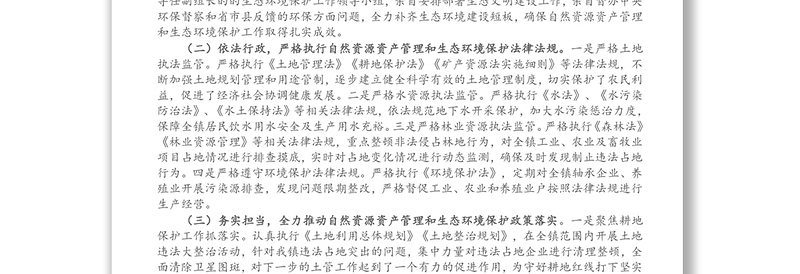 导任副组长的的生态环境保护工作领导小组，亲自安排部署生态文明建设工作，亲自督办中央
环保督察和省市县反馈的环保方面问题，全力补齐生态环境建设短板，确保自然资源资产管理
和生态环境保护工作取得扎实成效。
（二）依法行政，严格执行自然资源资产管理和生态环境保护法律法规。一是严格土地
执法监管。严格执行《土地管理法》《耕地保护法》《矿产资源法实施细则》等法律法规，不
断加强土地规划管理和用途管制，逐步建立健全科学有效的土地管理制度，切实保护了农民利
益，促进了经济社会协调健康发展。二是严格水资源执法监管。严格执行《水法》、《水污染
防治法》、《水土保持法》等相关法律法规，依法规范地下水开采保护，加大水污染惩治力度，
保障全镇居民饮水用水安全及生产用水充裕。三是严格林业资源执法监管。严格执行《森林法》
《林业资源管理》等相关法律法规，重点整顿非法侵占林地行为，对全镇工业、农业及畜牧业
项目占地情况进行排查摸底，实时对占地变化情况进行动态监测，确保及时发现制止违法占地
行为。四是严格遵守环境保护法律法规。严格执行《环境保护法》，定期对全镇轴承企业、养
殖业开展污染源排查，发现问题限期整改，严格督促工业、农业和养殖业户按照法律法规进行
生产经营。
（三）务实担当，全力推动自然资源资产管理和生态环境保护政策落实。一是聚焦耕地
保护工作抓落实。认真执行《土地利用总体规划》《土地整治规划》，在全镇范围内开展土地
违法大整治活动，针对我镇违法占地突出的问题，集中力量对违法占地企业进行清理整顿，全
面清除卫星图斑，对下一步的土管工作起到了一个有力的促进作用，为守好耕地红线打下坚实